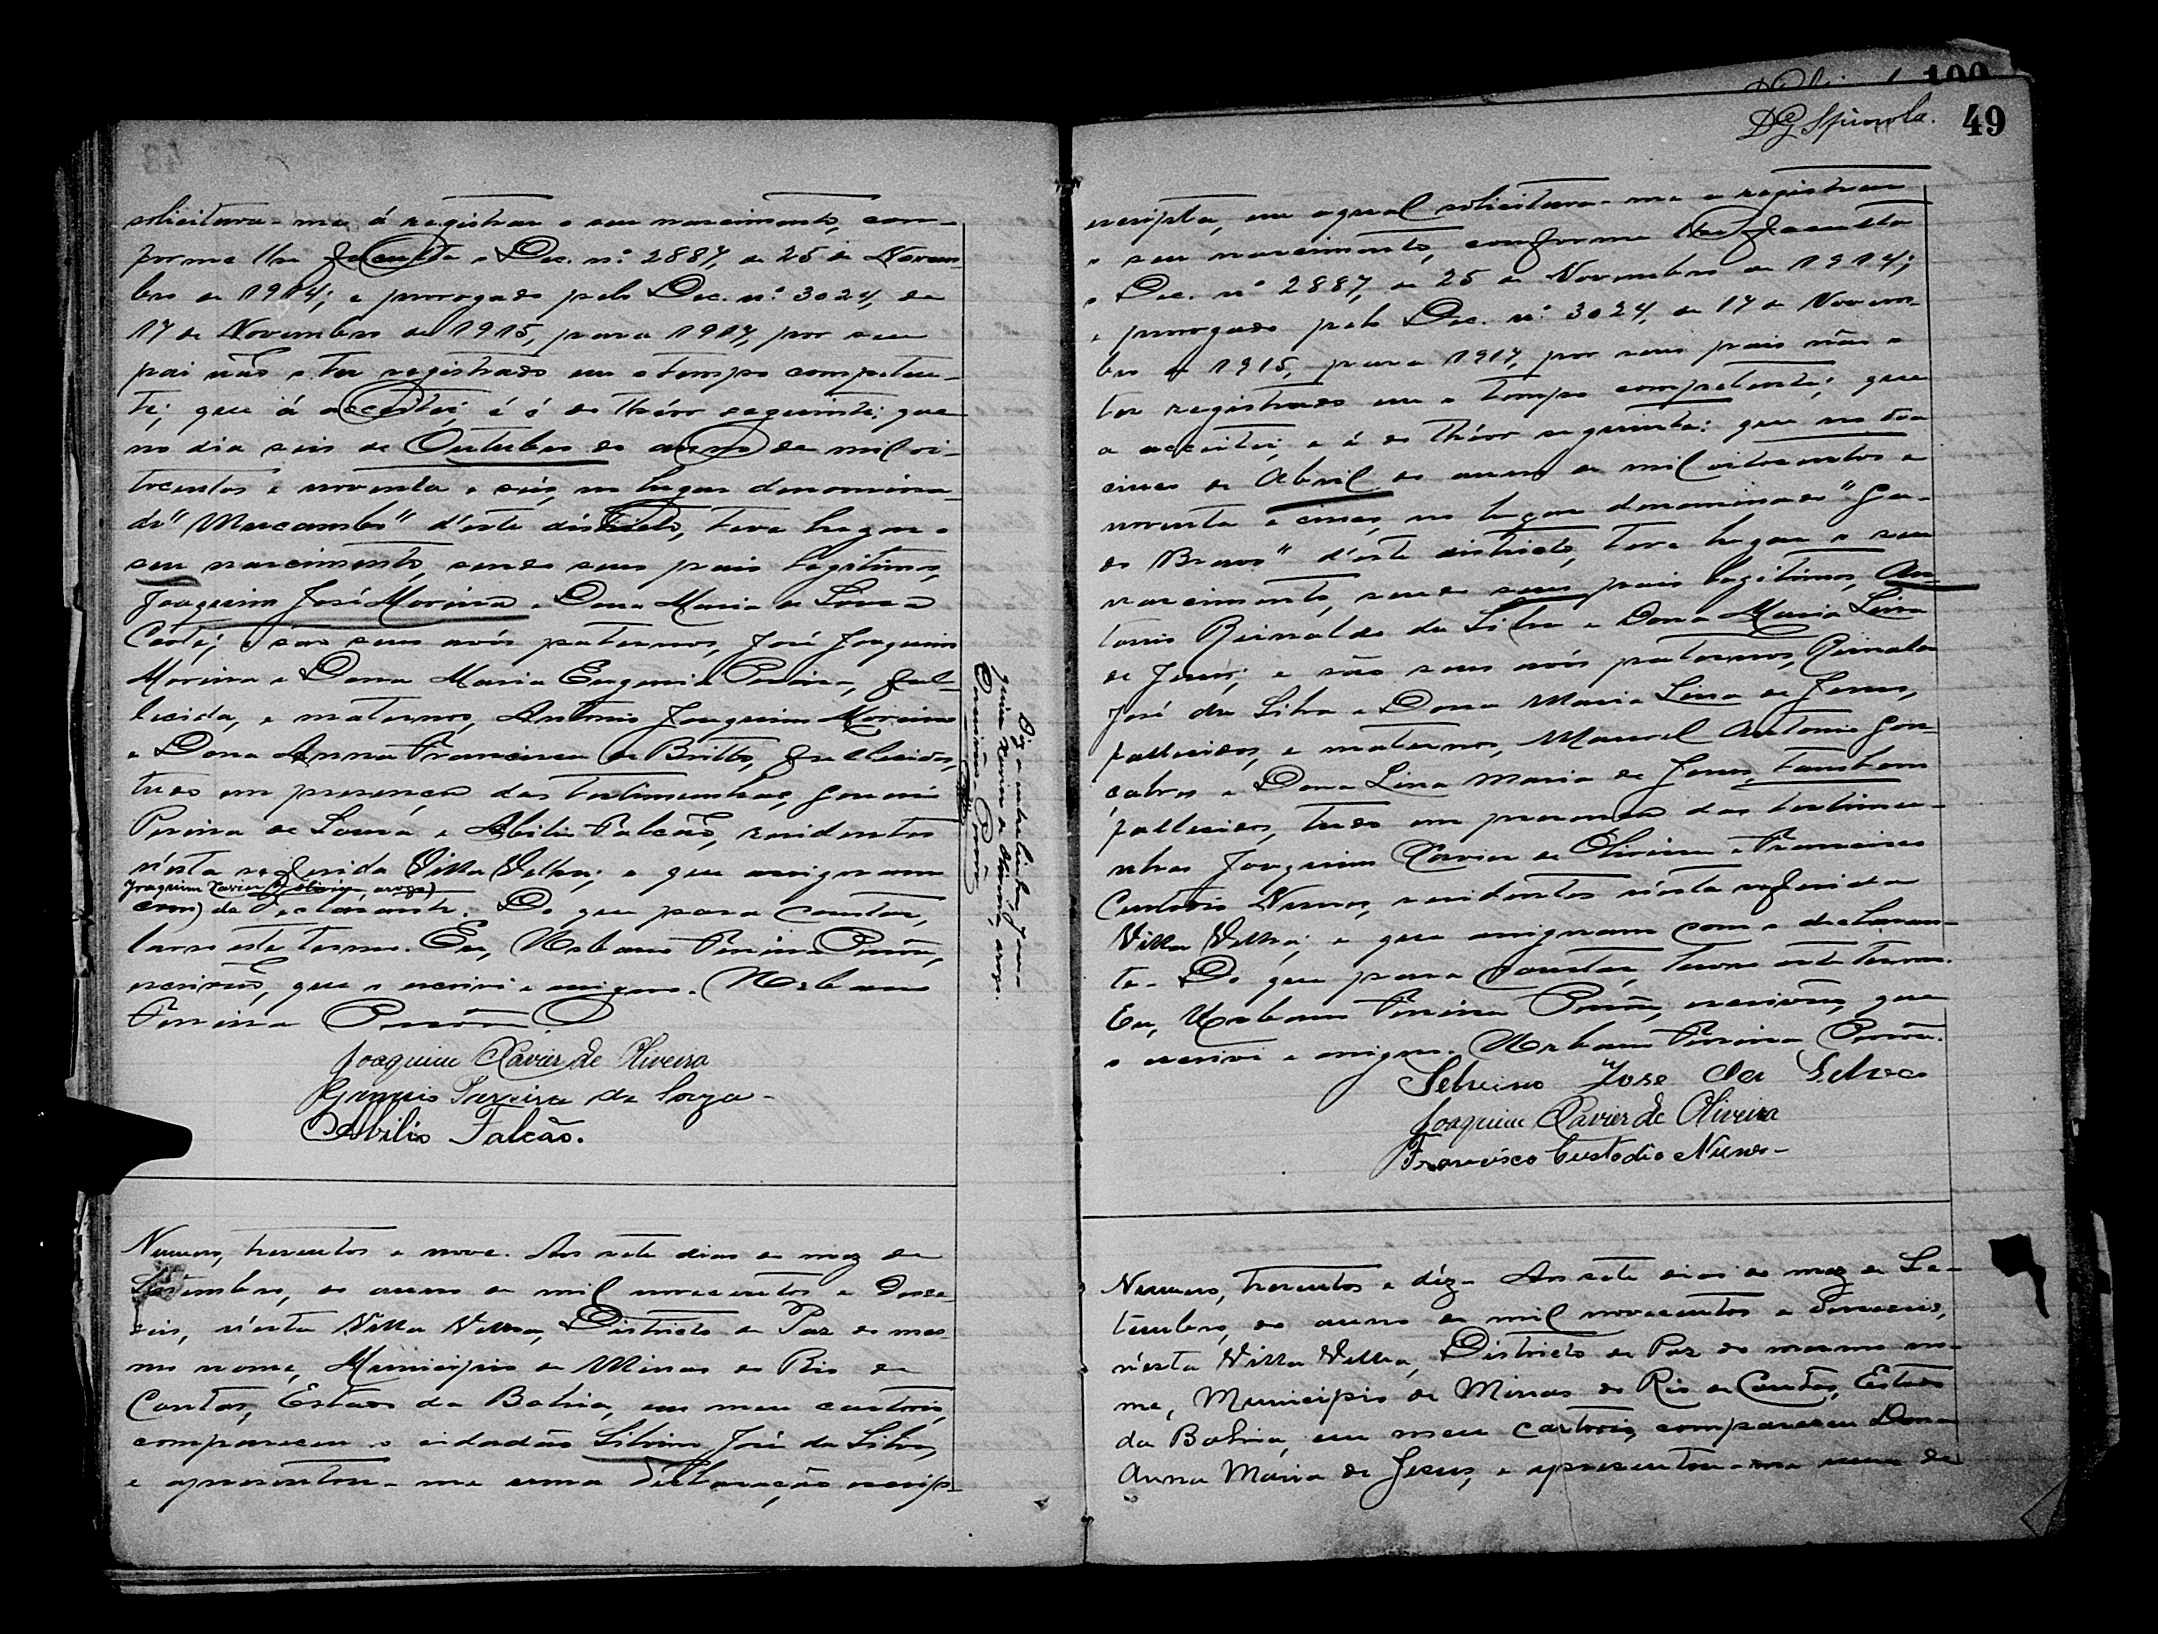 solicitara-me á registrar o seu nascimento, con-
forme lhe faculta o Dec. nº 2887, de 25 de Novem-
bro de 1914; e prorogado pelo Dec. nº 3024, de
17 de Novembro de 1915, para 1917, por seu
pai não o ter registrado em o tempo competen-
te; que á acceitei, e é do theor seguinte: que
no dia seis de Outubro do anno de mil oi-
tocentos e noventa e seis, no lugar denomina-
do "Mucambo" d'este districto, teve lugar o
seu nascimento, sendo seus pais legitimos,
Joaquim José Moreira e Dona Maria de Souza
e são seus avós paternos, José Joaquim
Moreira e Dona Maria Eugenia Pereira, fal-
lecida, e maternos, Antonio Joaquim Moreira
e Dona Anna Francisca de Britto, fallecidos,
tudo em presença das testimunhas, Genesio
Pereira de Souza e Abilio Falcão, residentes
n'esta referida Villa Velha; e que assignam
Joaquim Xavier de Oliveira, arogo
com) da declarante. Do que para constar,
lavro este termo. Eu, Urbano Pereira
escrivão, que o escrivi e assigno. Urbano
Pereira
Joaquim Xavier de Oliveira
Genesio Pereira de Souza-
Abilio Falcão.
Numero, trescentos e nove. Aos sete dias do mez de
Setembro, do anno de mil novecentos e deze-
seis, n'esta Villa Velha, Districto de Paz do mes-
mo nome, Municipio de Minas do Rio de
Contas, Estado da Bahia, em meu cartorio,
compareceu o cidadão Silvino José da Silva,
e apresentou-me uma declaração escrip-
Diz a entrelinha, Joa-
quim Xavier de Oliveira, arogo.
O escrivão
DG Spinola.
49
escripta, em a qual solicitara-me a registrar
o seu nascimento, conforme lhe faculta
o Dec. nº 2887, de 25 de Novembro de 1914;
e prorogado pelo Dec. nº 3024, de 17 de Novem-
bro de 1915, para 1917, por seus pais não o
ter registrado em o tempo competente; que
a acceitei, e é do theor seguinte: que no dia
cinco de Abril do anno de mil oitocentos e
noventa e cinco, no lugar denominado
do Bravo" d'este districto, teve lugar o seu
nascimento, sendo seus pais legitimos, An-
tonio Reinaldo da Silva e Dona Maria Lina
de Jesus; e são seus avós paternos, Reinaldo
José da Silva e Dona Maria Lina de Jesus,
fallecidos, e maternos, Manoel Antonio Gon-
çalves e Dona Lina Maria de Jesus, tambem
fallecidos, tudo em presença das testimu-
nhas Joaquim Xavier de Oliveira e Francisco
Custodio Nunes, residentes n'esta referida
Villa Velha; e que assignam com o declaran-
te. Do que para constar, lavro este termo.
Eu, Urbano Pereira escrivão, que
o escrivi e assigno. Urbano Pereira
Selvino Jose da Selva
Joaquim Xavier de Oliveira
Francisco Custodio Nunes-
Numero, trescentos e déz. Aos sete dias do mez de Se-
tembro, do anno de mil novecentos e dezeseis,
n'esta Villa Velha, Districto de Paz do mesmo no-
me, Municipio de Minas do Rio de Contas, Estado
da Bahia, em meu cartorio, compareceu Dona
Anna Maria de Jesus, e apresentou-me uma de